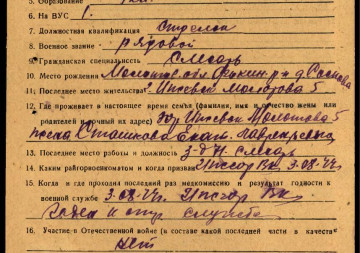 5. Образование
6. На ВУС 1.
7. Должностная квалификация Стрелок
8. Военное звание рядовой
9. Гражданская специальность Слесарь
10. Место рождения Молотов. обл р-н д.
11. Последнее место жительства Ижевск Молотова 5
12. Где проживает в настоящее время семья (фамилия, имя и отчество жены или
родителей и точный их адрес) Ижевск Молотова 5
жена Екат. Лаврентьевна
13. Последнее место работы и должность з-д 71. Слесарь
14. Каким райгорвоенкоматом и когда призван 3-08-44г
15. Когда и где проходил последний раз медкомиссию и результат годности к
военной службе 3-08-44г.
Годен к стр. службе
16. Участие в Отечественной войне (в составе какой последней части в качестве
нет